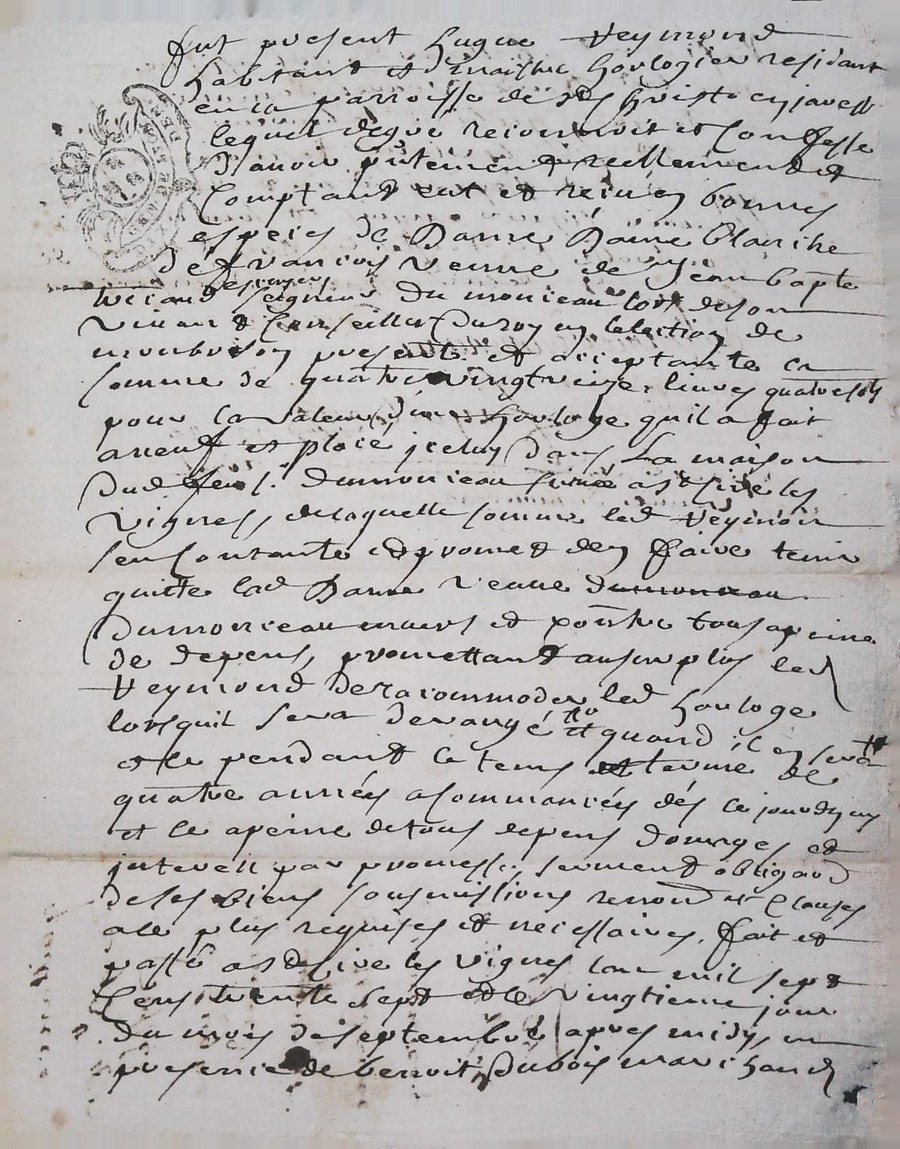 fut present hugue Veymond
habitant et maistre horlogier residant
en la parroisse de
lequel de gré reconnoit et Confesse
d'avoir reellement et
Comptant eut et reçu en bonnes
especes de Dame Dame blanche
de françois veuve de Jean bapte
escuyer
seigneur du monceau lors de son
vivant Conseiller du roy en lelection de
montbrison presente et acceptante la
somme de quatre vingt treize livres quatre sols
pour la valeur d'une horloge quil a fait
a neuf et place jceluy dans la maison
dud feu sr dumonceau a st the les
vignes, de laquelle somme led Veymond
sen contante et promet den faire tenir
quitte lad Dame veuve dumonceau
dumonceau envers et contre tous a peine
de depens, promettant au surplus led
Veymond de racommoder led horloge
lorsquil sera derangé et quand il en sera
et ce pendant le tems et terme de
quatre années a commancées dés ce jourdhuy
et ce a peine de tous depens domages et
interets par promesse serment obligaon
de ses biens soumissions renon et Clauses
a ce plus requises et necessaires, fait et
passé a les vignes lan mil sept
Cens trente sept et le vingtieme jour
du mois de septembre apres midy, en
presence de benoit Dubois marchand